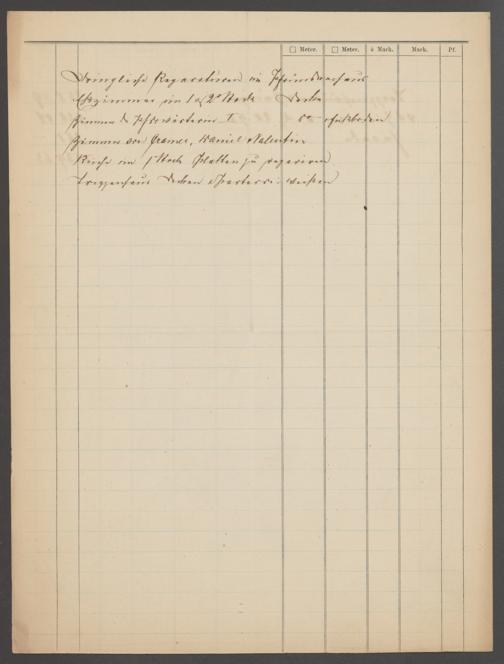 □ Meter. □ Meter. à Mark. Mark. Pf.
Dringliche Reparaturen im Pfründnerhaus
Eßzimmer im 1 & 2ᵗ Stock Decke
Zimmer d. I do Fußboden
Zimmer von Daniel Valentin
Küche im 1 Stock Platten zu repariren
Treppenhaus Decken weißen